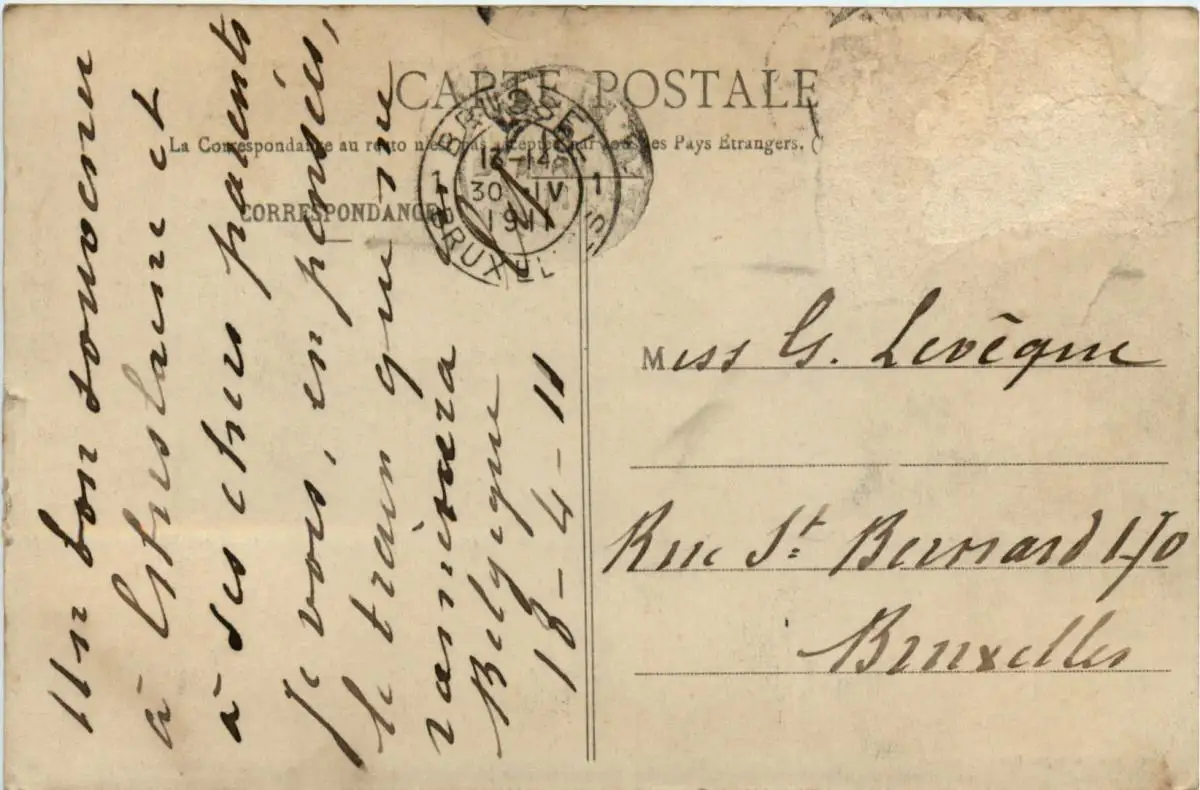 CARTE POSTALE
La Correspondance au recto n'est pas acceptée par tous les Pays Etrangers. (
CORRESPONDANCE
BRUSSEL
13-14
30 IV
1911
1 1
BRUXELLES
Un bon souvenir
à
à ses chers parents
Je vois, en pensées,
le train qui me
ramènera
Belgique
18-4-11
Miss G. Levêque
Rue St Bernard 170
Bruxelles